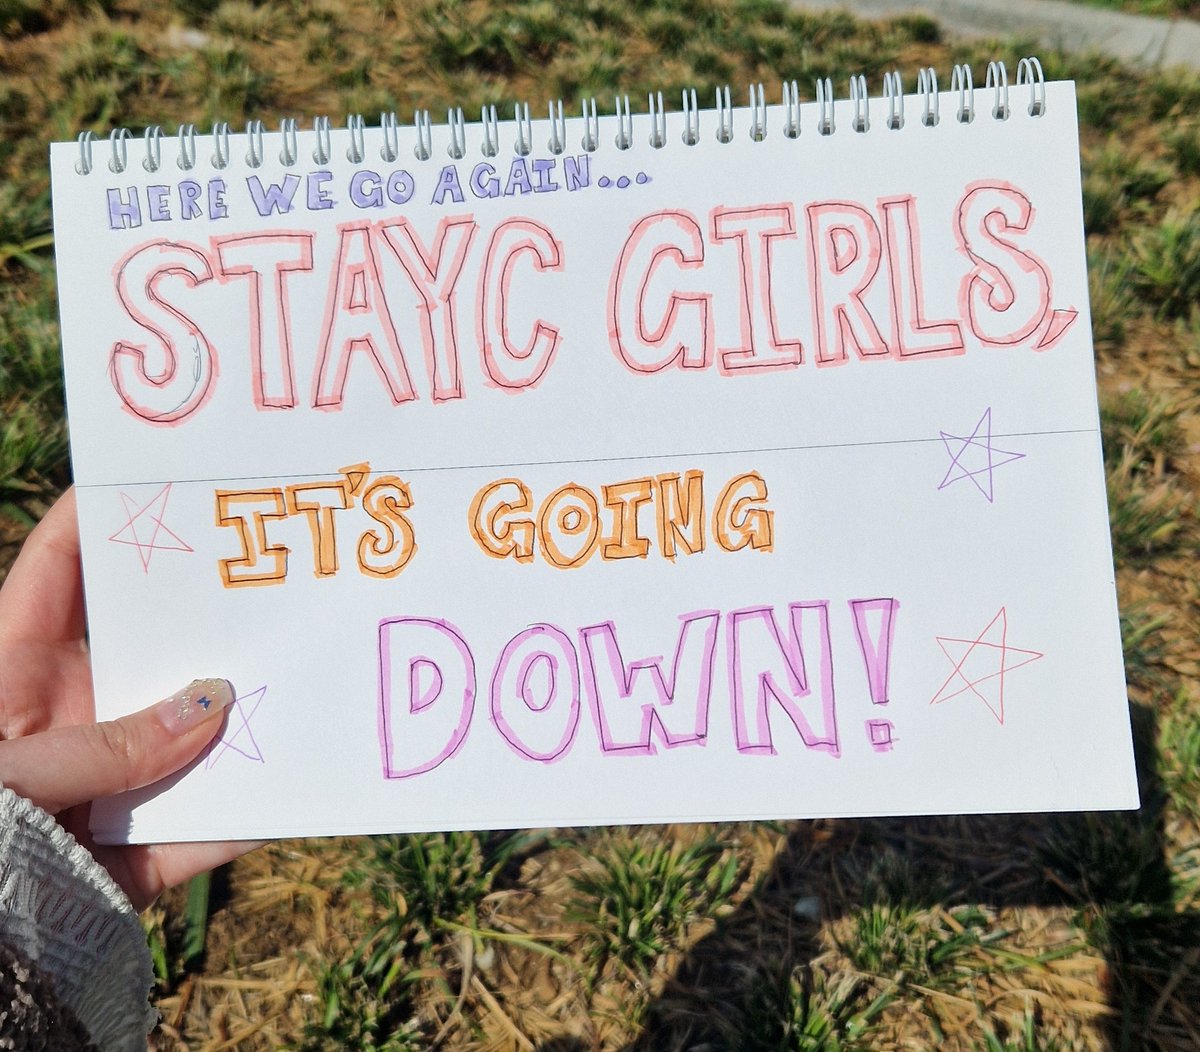 HERE WE GO AGAIN...
STAYC GIRLS,
IT'S GOING
DOWN!